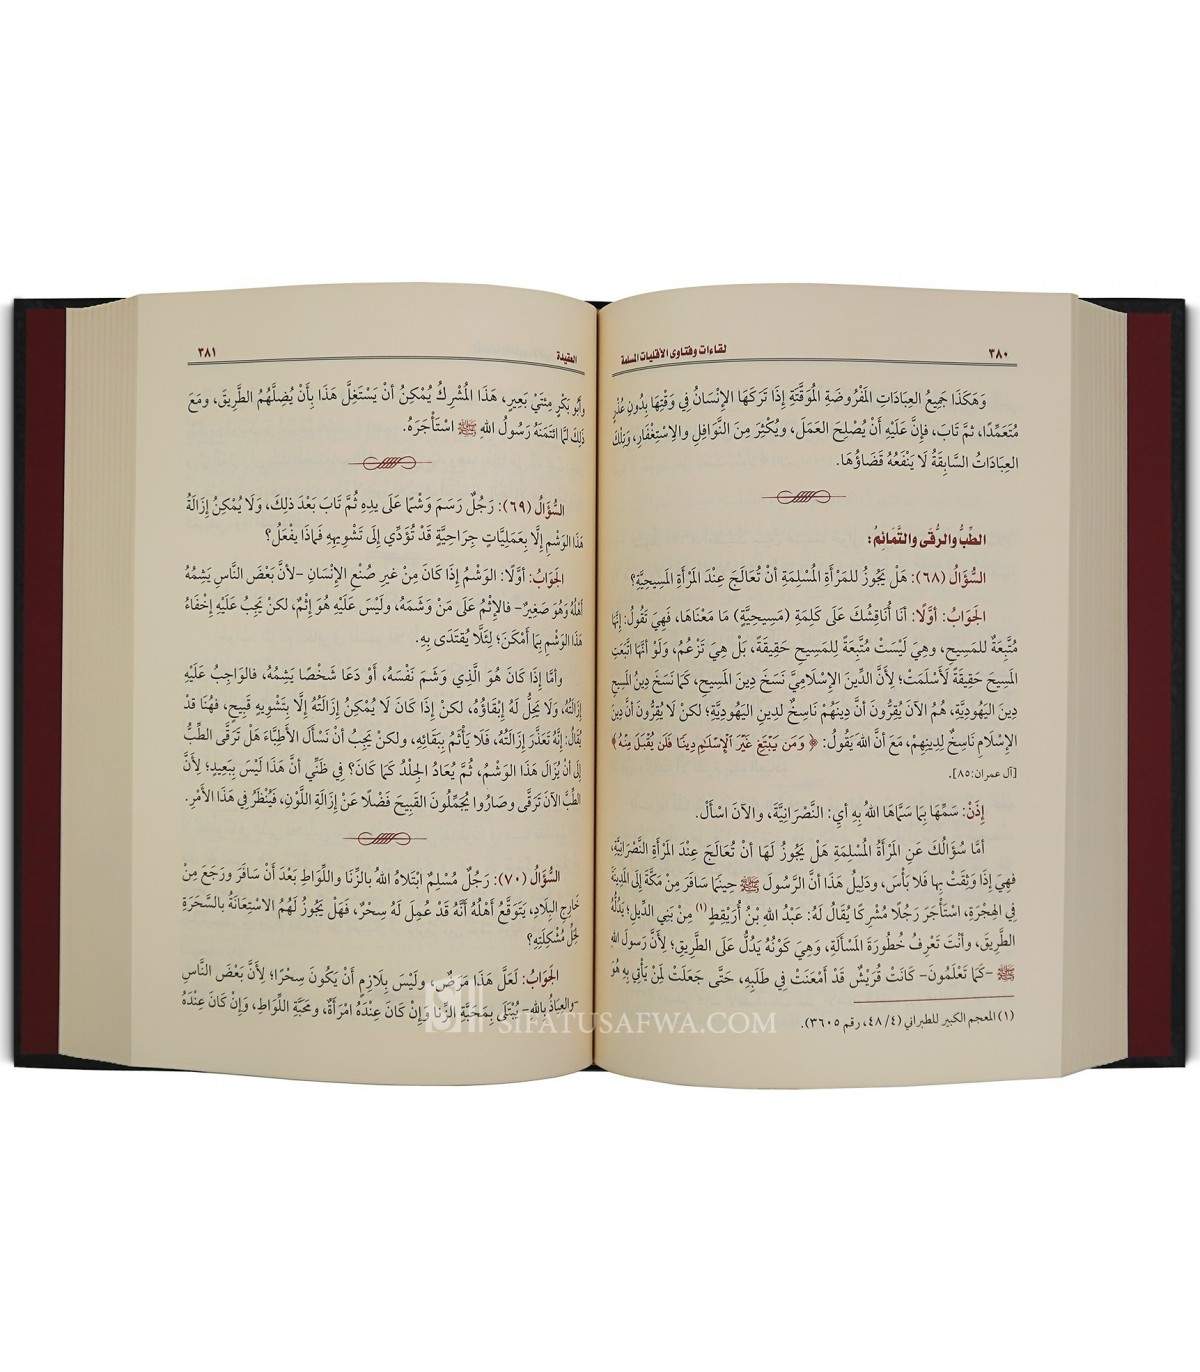 ٣٨٠ لقاءات وفتاوى الأقليات المسلمة
وَهَكَذَا جَمِيعُ العِبَادَاتِ المَفْرُوضَةِ المُوَقَّتَةِ إِذَا تَرَكَهَا الإِنْسَانُ فِي وَقْتِهَا بِدُونِ عُذْرٍ
مُتَعَمِّدًا، ثمَّ تَابَ، فإنَّ عَلَيْهِ أَنْ يُصْلِحَ العَمَلَ، ويُكْثِرَ مِنَ النَّوَافِلِ والِاسْتِغْفَارِ، وَتِلْكَ
العِبَادَاتُ السَّابِقَةُ لَا يَنْفَعُهُ قَضَاؤُهَا.
الطِّبُّ والرُّقى والتَّمَائِمُ:
السُّؤَالُ (٦٨): هَلْ يَجُوزُ للمَرْأَةِ المُسْلِمَةِ أنْ تُعَالَجَ عِنْدَ المَرْأَةِ المَسِيحِيَّةِ؟
الجَوَابُ: أوَّلًا: أنَا أُنَاقِشُكَ عَلَى كَلِمَةِ (مَسِيحِيَّةٍ) مَا مَعْنَاهَا، فَهِيَ تَقُولُ: إنَّهَا
مُتَّبِعَةٌ للمَسِيحِ، وهِيَ لَيْسَتْ مُتَّبِعَةً للمَسِيحِ حَقِيقَةً، بَلْ هِيَ تَزْعُمُ، وَلَوْ أنَّهَا اتَّبَعَتِ
المَسِيحَ حَقِيقَةً لَأَسْلَمَتْ؛ لِأَنَّ الدِّينَ الإِسْلَامِيَّ نَسَخَ دِينَ المَسِيحِ، كَمَا نَسَخَ دِينُ المَسِيحِ
دِينَ اليَهُودِيَّةِ، هُمُ الآنَ يُقِرُّونَ أنَّ دِينَهُمْ نَاسِخٌ لدِينِ اليَهُودِيَّةِ؛ لكنْ لَا يُقِرُّونَ أنَّ دِينَ
الإِسْلَامِ نَاسِخٌ لدِينِهِمْ، مَعَ أنَّ اللهَ يَقُولُ: ﴿ وَمَن يَبْتَغِ غَيْرَ ٱلْإِسْلَٰمِ دِينًا فَلَن يُقْبَلَ مِنْهُ﴾
[آل عمران:٨٥].
إِذَنْ: سَمِّهَا بِمَا سَمَّاهَا اللهُ بِهِ أيِ: النَّصْرَانِيَّةَ، والآنَ اسْأَلْ.
أمَّا سُؤَالُكَ عَنِ المَرْأَةِ المُسْلِمَةِ هَلْ يَجُوزُ لَهَا أنْ تُعَالَجَ عِنْدَ المَرْأَةِ النَّصْرَانِيَّةِ،
فهِيَ إذَا وَثِقَتْ بِهَا فَلا بَأْسَ، ودَلِيلُ هَذَا أنَّ الرَّسُولَ ﷺ حِينَمَا سَافَرَ مِنْ مَكَّةَ إِلَى المَدِينَةِ
فِي الهِجْرَةِ، اسْتَأْجَرَ رَجُلًا مُشْرِكًا يُقَالُ لَهُ: عَبْدُ اللهِ بْنُ أُرَيْقِطٍ(١) مِنْ بَنِي الدِّيلِ؛ يَدُلُّهُ
الطَّرِيقَ، وأنْتَ تَعْرِفُ خُطُورَةَ المَسْأَلَةِ، وهِيَ كَوْنُهُ يَدُلُّ عَلَى الطَّرِيقِ؛ لِأَنَّ رَسولَ اللهِ
ﷺ –كَمَا تَعْلَمُونَ– كَانَتْ قُرَيْشٌ قَدْ أمْعَنَتْ فِي طَلَبِهِ، حَتَّى جَعَلَتْ لمَنْ يَأْتِي بِهِ هُوَ
(١) المعجم الكبير للطبراني (٤/ ٤٨، رقم ٣٦٠٥).
العقيدة ٣٨١
وأَبُو بَكْرٍ مِئَتَيْ بَعِيرٍ، هَذَا المُشْرِكُ يُمْكِنُ أنْ يَسْتَغِلَّ هَذَا بِأنْ يُضِلَّهُمُ الطَّرِيقَ، ومَعَ
ذَلِكَ لمَّا ائْتَمَنَهُ رَسُولُ اللهِ ﷺ اسْتَأْجَرَهُ.
السُّؤَالُ (٦٩): رَجُلٌ رَسَمَ وَشْمًا عَلَى يدِهِ ثُمَّ تَابَ بَعْدَ ذلِكَ، وَلَا يُمْكِنُ إزَالَةُ
هَذَا الوَشْمِ إلَّا بِعَمَلِيَّاتٍ جِرَاحِيَّةٍ قَدْ تُؤَدِّي إلَى تَشْوِيهِهِ فَمَاذَا يَفْعَلُ؟
الجَوَابُ: أوَّلًا: الوَشْمُ إذَا كَانَ مِنْ غيرِ صُنْعِ الإنْسَانِ –لأنَّ بَعْضَ النَّاسِ يَشِمُهُ
أهْلُهُ وَهُوَ صَغِيرٌ– فالإِثْمُ عَلَى مَنْ وَشَمَهُ، ولَيْسَ عَلَيْهِ هُوَ إثْمٌ، لكنْ يَجِبُ عَلَيْهِ إخْفَاءُ
هَذَا الوَشْمِ بِمَا أمْكَنَ؛ لِئَلَّا يُقْتَدَى بِهِ.
وأمَّا إذَا كَانَ هُوَ الَّذِي وَشَمَ نَفْسَهُ، أوْ دَعَا شَخْصًا يَشِمُهُ، فالوَاجِبُ عَلَيْهِ
إزَالَتُهُ، وَلَا يَحِلُّ لَهُ إبْقَاؤُهُ، لكنْ إذَا كَانَ لَا يُمْكِنُ إزَالَتُهُ إلَّا بِتَشْوِيهٍ قَبِيحٍ، فهُنَا قَدْ
يُقَالُ: إنَّهُ تَعَذَّرَ إزَالَتُهُ، فَلَا يَأْثَمُ بِبَقَائِهِ، ولكنْ يَجِبُ أنْ نَسْأَلَ الأطِبَّاءَ هَلْ تَرَقَّى الطِّبُّ
إلَى أنْ يُزَالَ هَذَا الوَشْمُ، ثُمَّ يُعَادُ الجِلْدُ كَمَا كَانَ؟ فِي ظَنِّي أنَّ هَذَا لَيْسَ بِبَعِيدٍ؛ لِأَنَّ
الطِّبَّ الآنَ تَرَقَّى وصَارُوا يُجَمِّلُونَ القَبِيحَ فَضْلًا عَنْ إزَالَةِ اللَّوْنِ، فَيُنْظَرُ فِي هَذَا الأَمْرِ.
السُّؤَالُ (٧٠): رَجُلٌ مُسْلِمٌ ابْتَلَاهُ اللهُ بالزِّنَا واللِّوَاطِ بَعْدَ أنْ سَافَرَ ورَجَعَ مِنْ
خَارِجِ البِلَادِ، يَتَوَقَّعُ أهْلُهُ أنَّهُ قَدْ عُمِلَ لَهُ سِحْرٌ، فَهَلْ يَجُوزُ لَهُمُ الِاسْتِعَانَةُ بالسَّحَرَةِ
لحَلِّ مُشْكِلَتِهِ؟
الجَوَابُ: لَعَلَّ هَذَا مَرَضٌ، ولَيْسَ بِلَازِمٍ أنْ يَكُونَ سِحْرًا؛ لِأَنَّ بَعْضَ النَّاسِ
–والعِيَاذُ بِاللهِ– يُبْتَلَى بِمَحَبَّةِ الزِّنَا وَإنْ كَانَ عِنْدَهُ امْرَأَةٌ، ومَحَبَّةِ اللِّوَاطِ، وَإنْ كَانَ عِنْدَهُ
SIFATUSAFWA.COM